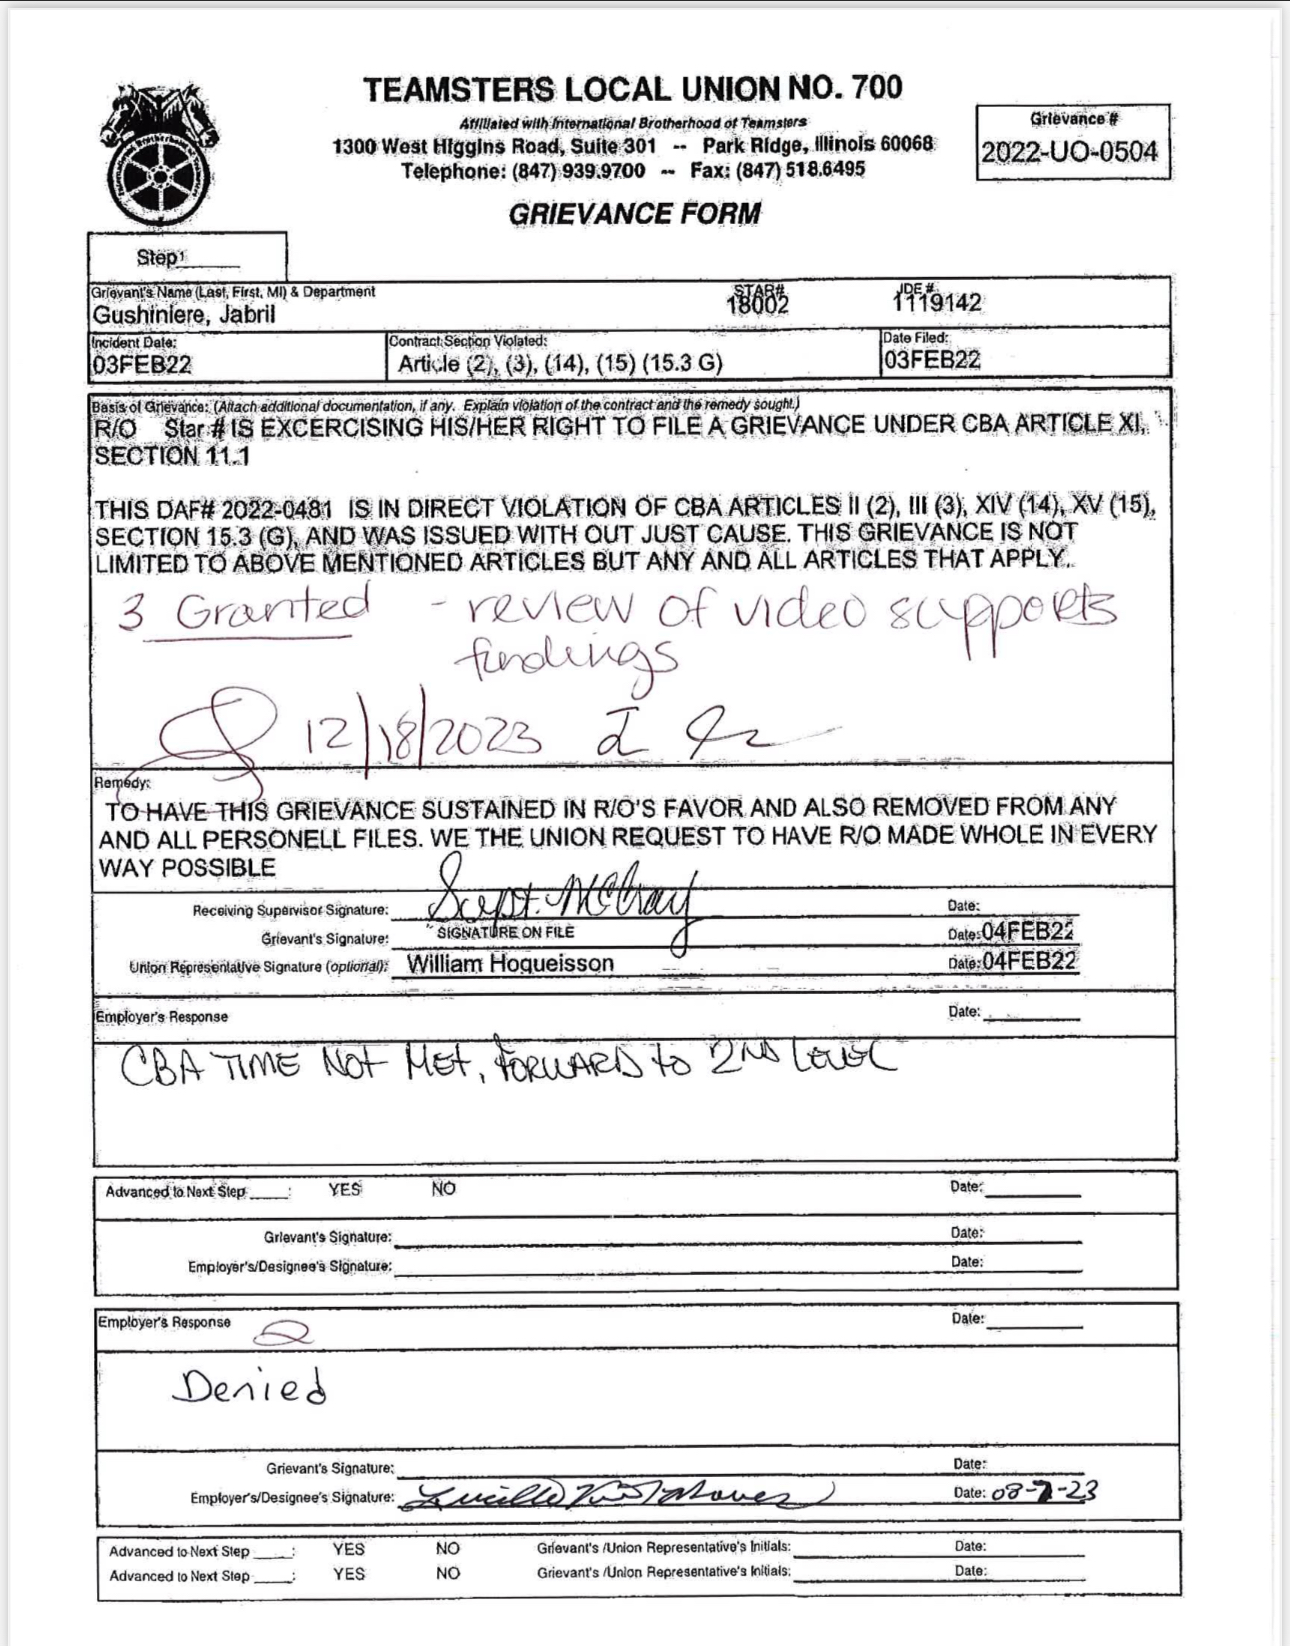 TEAMSTERS LOCAL UNION NO. 700
Affiliated with International Brotherhood of Teamsters
1300 West Higgins Road, Suite 301 -- Park Ridge, Illinois 60068
Telephone: (847) 939.9700 -- Fax: (847) 518.6495
GRIEVANCE FORM
Grievance #
2022-UO-0504
Step
Grievant's Name (Last, First, MI) & Department
STAR#
IDE #
Gushiniere, Jabril
18002
1119142
Incident Date:
Contract Section Violated:
Date Filed:
03FEB22
Article (2), (3), (14), (15) (15.3 G)
03FEB22
Basis of Grievance: (Attach additional documentation, if any. Explain violation of the contract and the remedy sought.)
R/O Star # IS EXCERCISING HIS/HER RIGHT TO FILE A GRIEVANCE UNDER CBA ARTICLE XI,
SECTION 11.1
THIS DAF# 2022-0481 IS IN DIRECT VIOLATION OF CBA ARTICLES II (2), III (3), XIV (14), XV (15),
SECTION 15.3 (G), AND WAS ISSUED WITH OUT JUST CAUSE. THIS GRIEVANCE IS NOT
LIMITED TO ABOVE MENTIONED ARTICLES BUT ANY AND ALL ARTICLES THAT APPLY.
3 Granted - review of video supports
findings
12/18/2023
Remedy:
TO HAVE THIS GRIEVANCE SUSTAINED IN R/O'S FAVOR AND ALSO REMOVED FROM ANY
AND ALL PERSONELL FILES. WE THE UNION REQUEST TO HAVE R/O MADE WHOLE IN EVERY
WAY POSSIBLE
Receiving Supervisor Signature: Date:
Grievant's Signature: SIGNATURE ON FILE Date: 04FEB22
Union Representative Signature (optional): William Hoqueisson Date: 04FEB22
Employer's Response Date:
CBA TIME NOT MET, FORWARD to 2ND LEVEL
Advanced to Next Step : YES NO Date:
Grievant's Signature: Date:
Employer's/Designee's Signature: Date:
Employer's Response 2 Date:
Denied
Grievant's Signature: Date:
Employer's/Designee's Signature: Date:
Advanced to Next Step : YES NO Grievant's /Union Representative's Initials: Date:
Advanced to Next Step : YES NO Grievant's /Union Representative's Initials: Date: